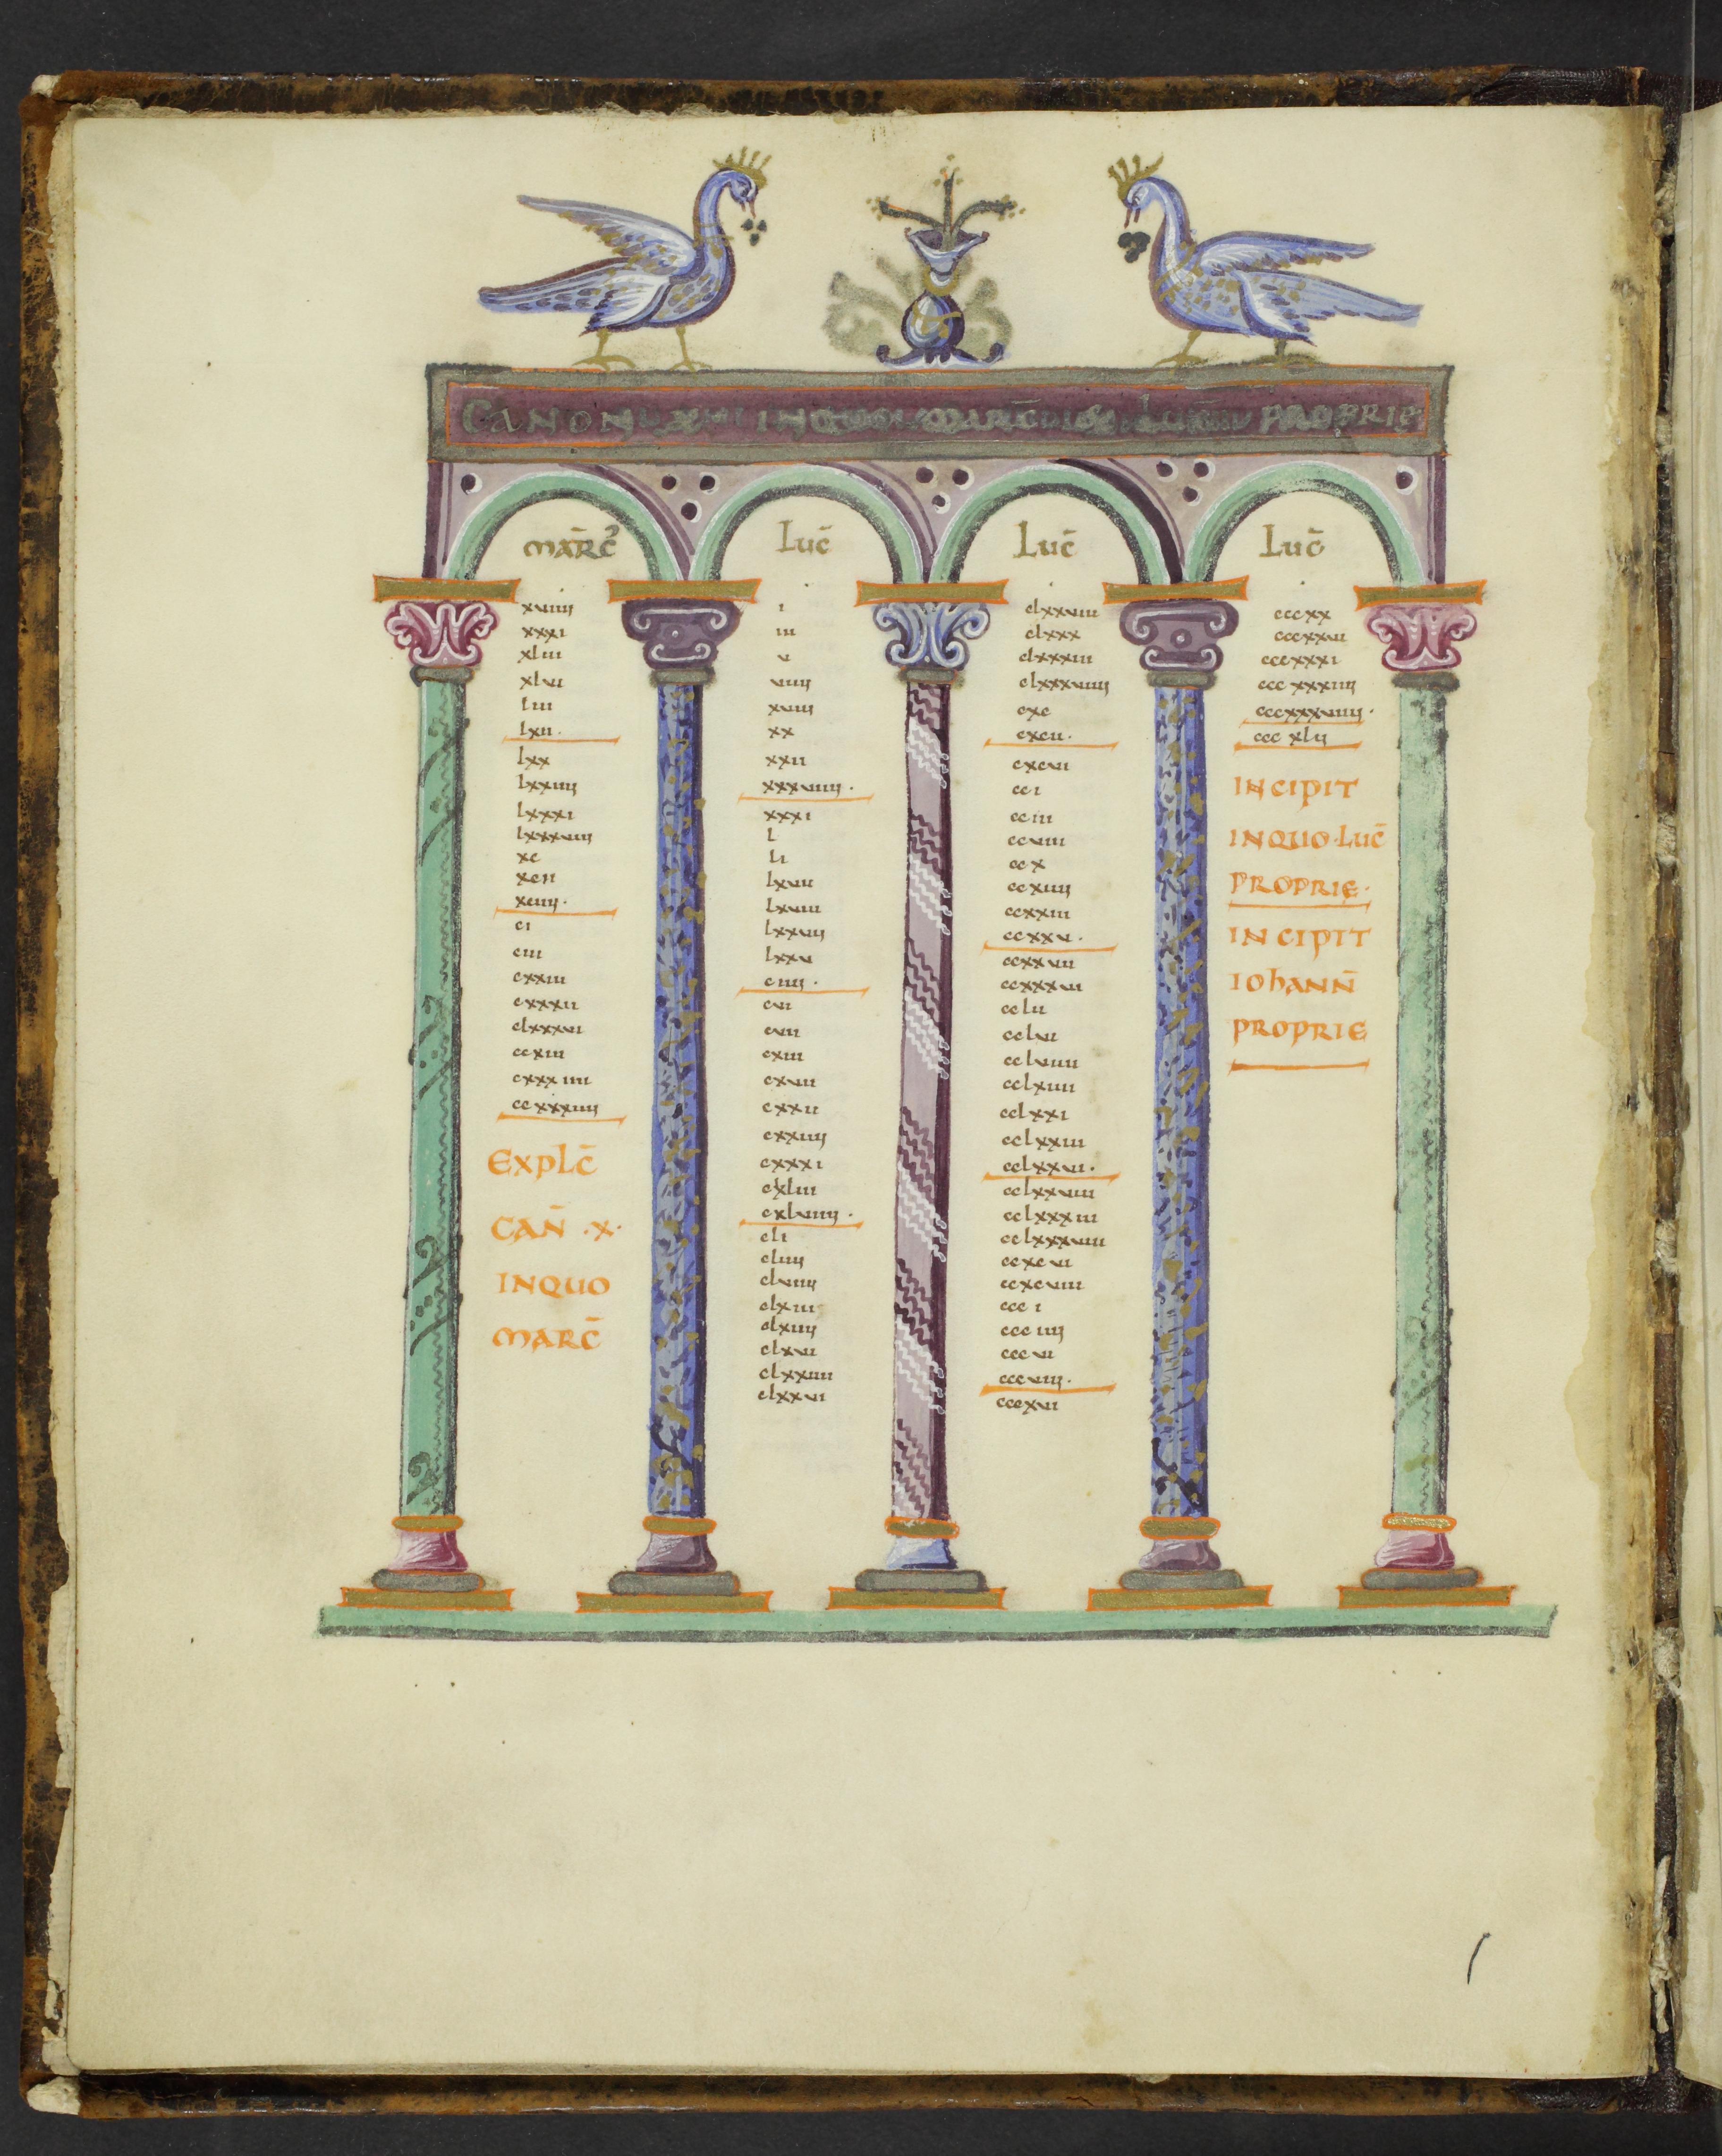 CANON IN QUO MARC LUC PROPRIE
MARC̄
xuiiii
xxxi
xliii
xlui
liii
lxii.
lxx
lxxiiii
lxxxi
lxxxuiii
xc
xcii
xciiii.
ci
ciii
cxxiii
cxxxii
clxxxui
ccxiii
cxxxiiii
ccxxxiiii
EXPLC̄
CAN̄ ·X·
INQUO
MARC̄
Luc̄
i
iii
u
uiiii
xuiiii
xx
xxii
xxxuiiii.
xxxi
l
li
lxuii
lxuiii
lxxuii
lxxu
ciiii.
cui
cuii
cxiii
cxuii
cxxii
cxxiiii
cxxxi
cxliii
cxluiiii.
cli
cliiii
cluiiii
clxiii
clxiiii
clxui
clxxiiii
clxxui
Luc̄
clxxuiii
clxxx
clxxxiii
clxxxuiiii
cxc
cxcii.
cxcui
cci
cciii
ccuiii
ccx
ccxiiii
ccxxiii
ccxxu.
ccxxuii
ccxxxui
cclii
cclui
ccluiiii
cclxiiii
cclxxi
cclxxiii
cclxxui.
cclxxuiii
cclxxxiii
cclxxxuiii
ccxcui
ccxcuiii
ccci
ccciiii
cccui
cccuiii.
cccxui
Luc̄
cccxx
cccxxuii
cccxxxi
cccxxxiiii
cccxxxuiiii.
cccxlii
INCIPIT
INQUO·LUC̄
PROPRIE·
INCIPIT
IOhANN̄
PROPRIE